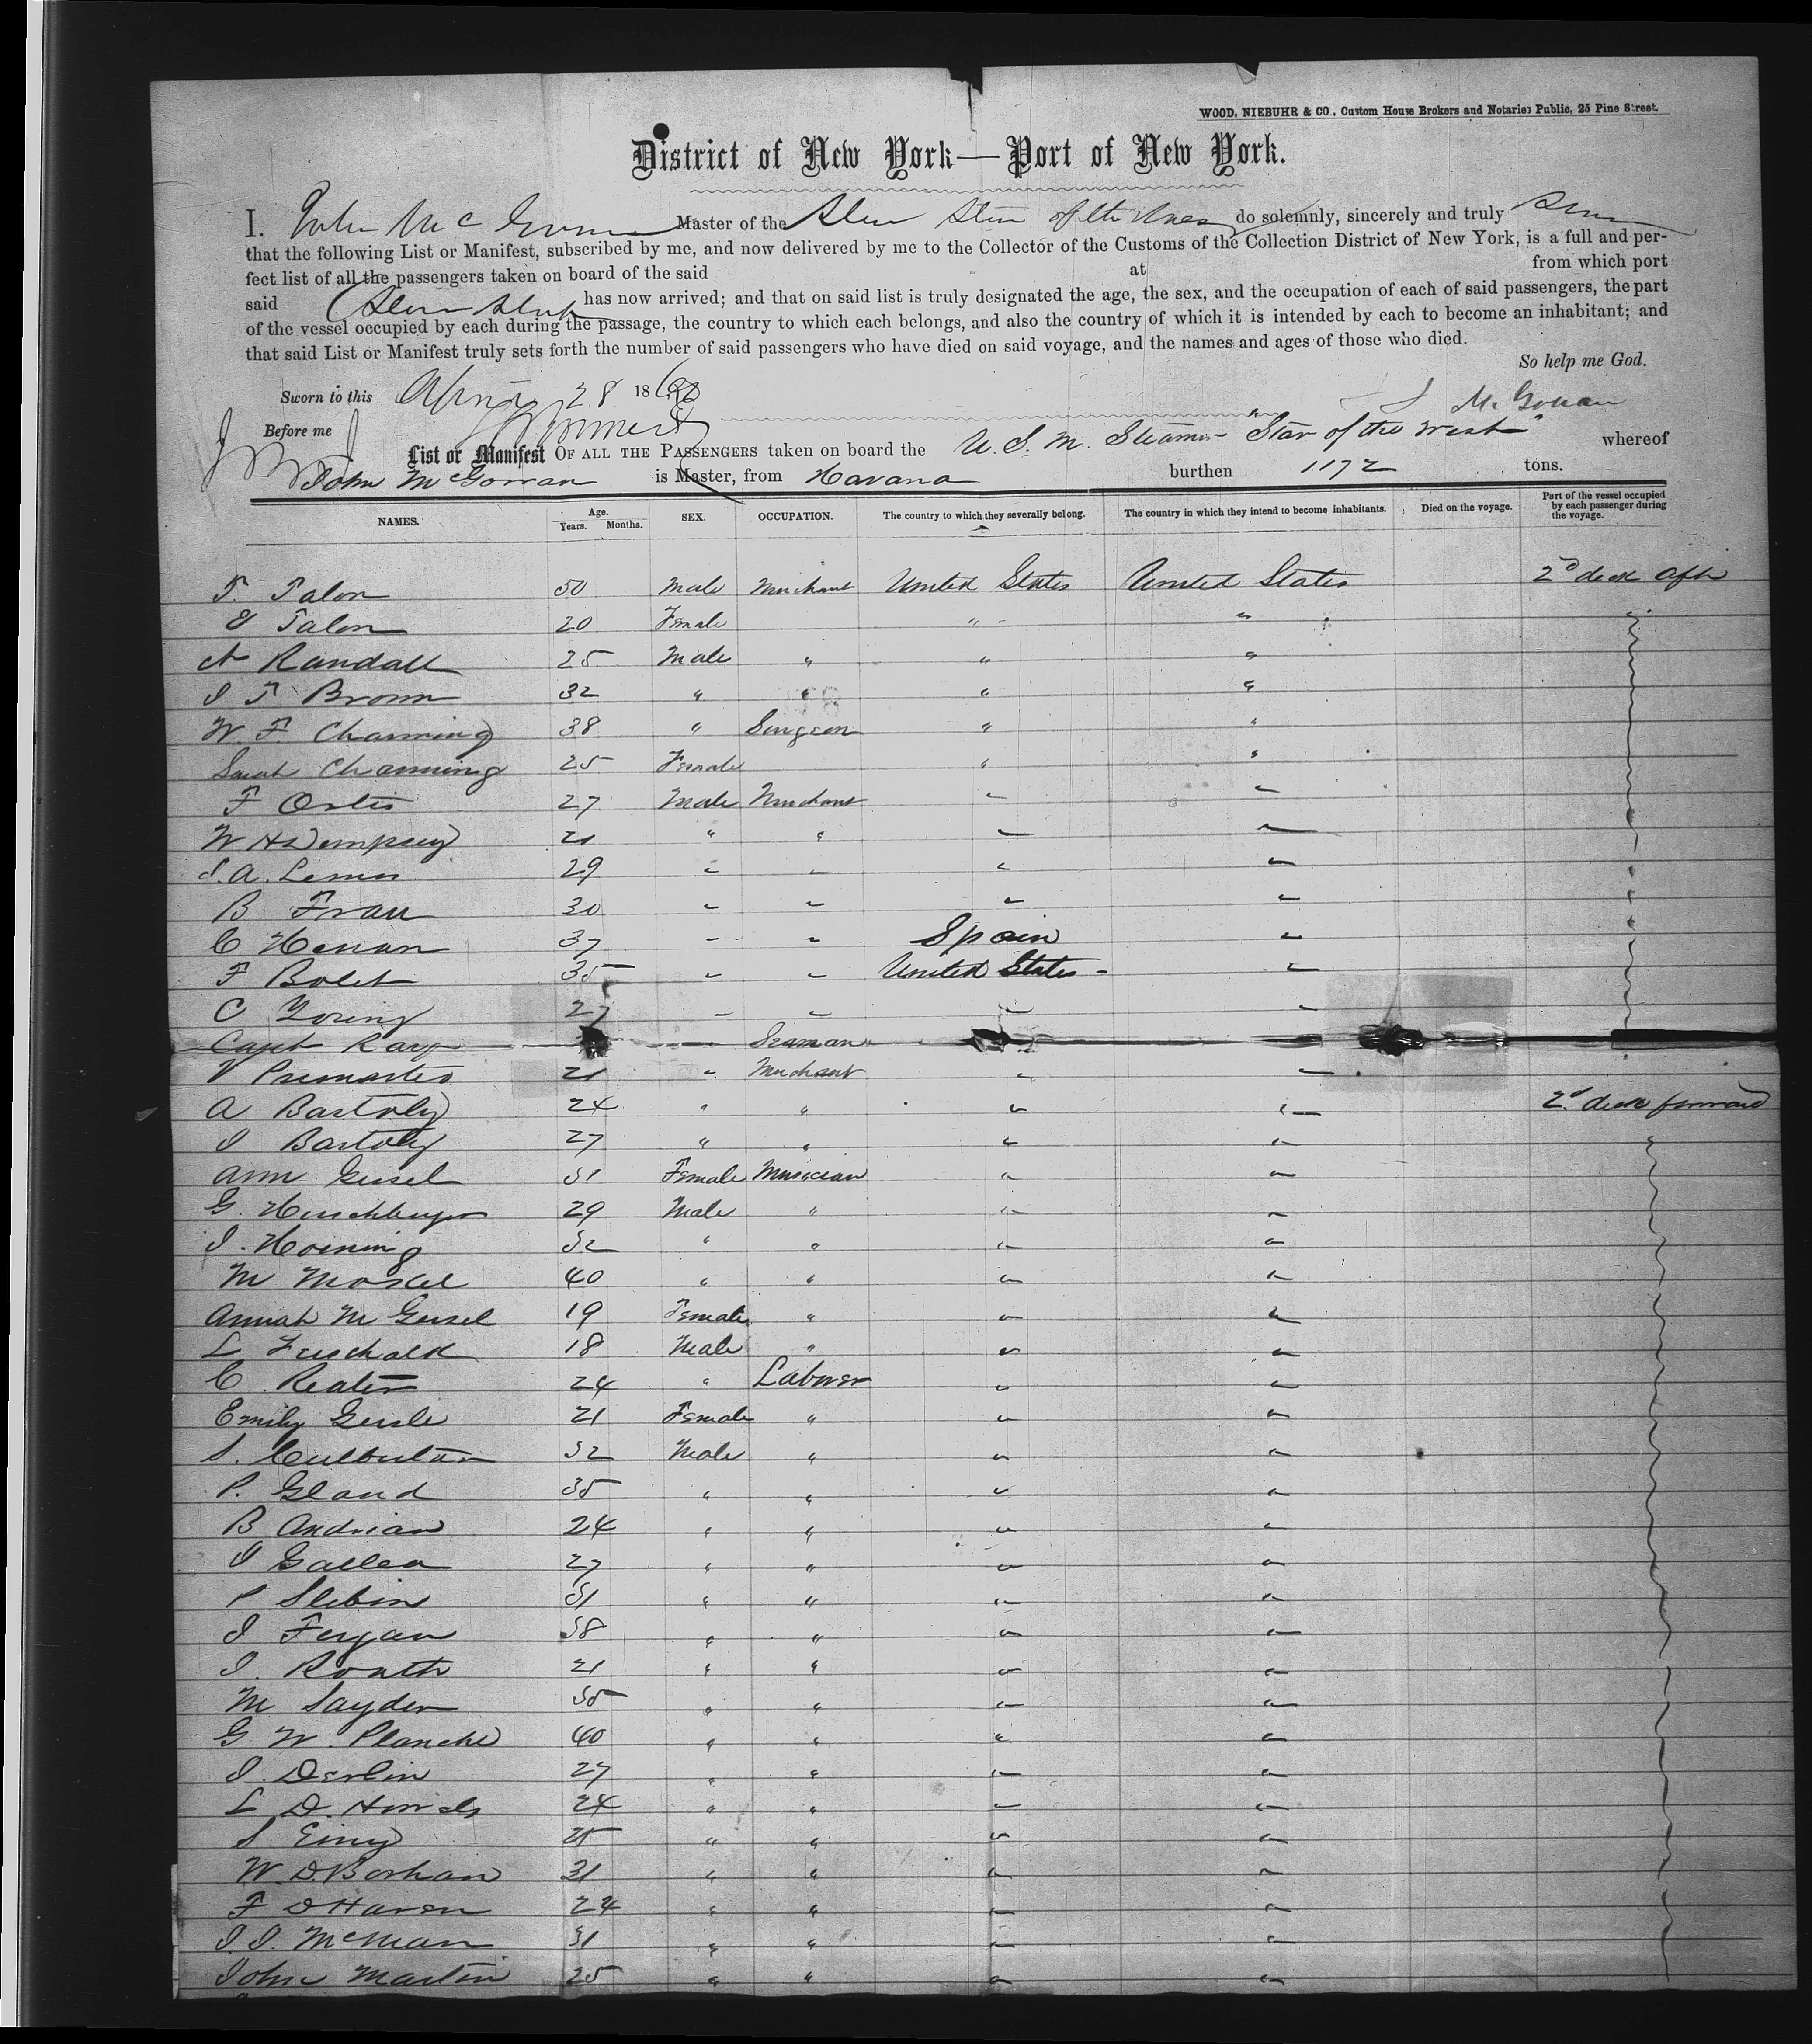 WOOD, NIEBUHR & CO., Custom House Brokers and Notaries Public, 25 Pine Street.
District of New York — Port of New York.
I. John McGowan Master of the Star of the West do solemnly, sincerely and truly
that the following List or Manifest, subscribed by me, and now delivered by me to the Collector of the Customs of the Collection District of New York, is a full and per-
fect list of all the passengers taken on board of the said at from which port
said has now arrived; and that on said list is truly designated the age, the sex, and the occupation of each of said passengers, the part
of the vessel occupied by each during the passage, the country to which each belongs, and also the country of which it is intended by each to become an inhabitant; and
that said List or Manifest truly sets forth the number of said passengers who have died on said voyage, and the names and ages of those who died.
So help me God.
Sworn to this April 28 186
Before me
McGowan
List or Manifest OF ALL THE PASSENGERS taken on board the U.S.M. Steamer "Star of the West" whereof
John McGowan is Master, from Havana burthen 1172 tons.
NAMES. Age. Years. Months. SEX. OCCUPATION. The country to which they severally belong. The country in which they intend to become inhabitants. Died on the voyage. Part of the vessel occupied by each passenger during the voyage.
F. Talon 50 Male Merchant United States United States 2d deck aft
E Talon 20 Female " "
A Randall 25 Male " " "
J T Brown 32 " " " "
W. F. Channing 38 " Surgeon " "
Sarah Channing 25 Female " "
F Ortis 27 Male Merchant " "
W H Dempsey 21 " " " "
J. A. Lemus 29 " " " "
B Frau 30 " " " "
C 37 " " Spain "
F Bolet 35 " " United States "
C Young 27 " " " "
Capt Ray " Seaman
V 21 " Merchant " "
A Bartoly 24 " " " " 2d deck forward
J Bartoly 27 " " " "
Ann Geisel 31 Female Musician " "
G. 29 Male " " "
J. Horning 32 " " " "
M 40 " " " "
Annah M Geisel 19 Female " " "
L 18 Male " " "
C 24 " Laborer " "
Emily 21 Female " " "
S. Culbertson 32 Male " " "
P. Gland 35 " " " "
B Andrian 24 " " " "
J Gallea 27 " " " "
P Slebin 31 " " " "
J Fergan 38 " " " "
J. Roath 21 " " " "
M Sayden 35 " " " "
G W. Planche 40 " " " "
J. Derlin 27 " " " "
L D. 24 " " " "
S 25 " " " "
W. D. Borhan 31 " " " "
F D Haven 24 " " " "
J. J. 31 " " " "
John Martin 25 " " " "